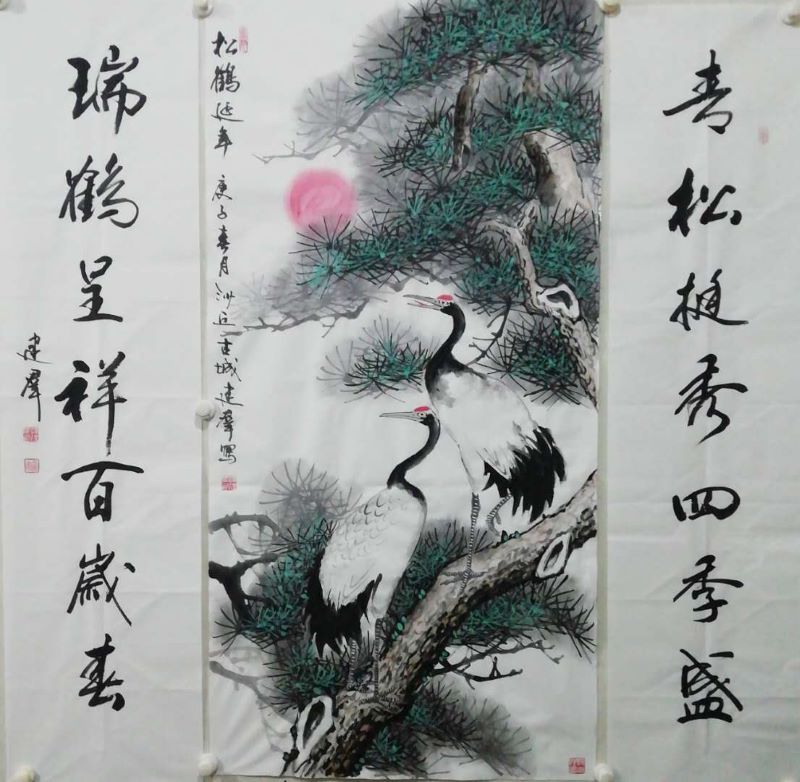 青松挺秀四季盛
松鹤延年 庚子春月沙丘古城建群写
瑞鹤呈祥百岁春
建群